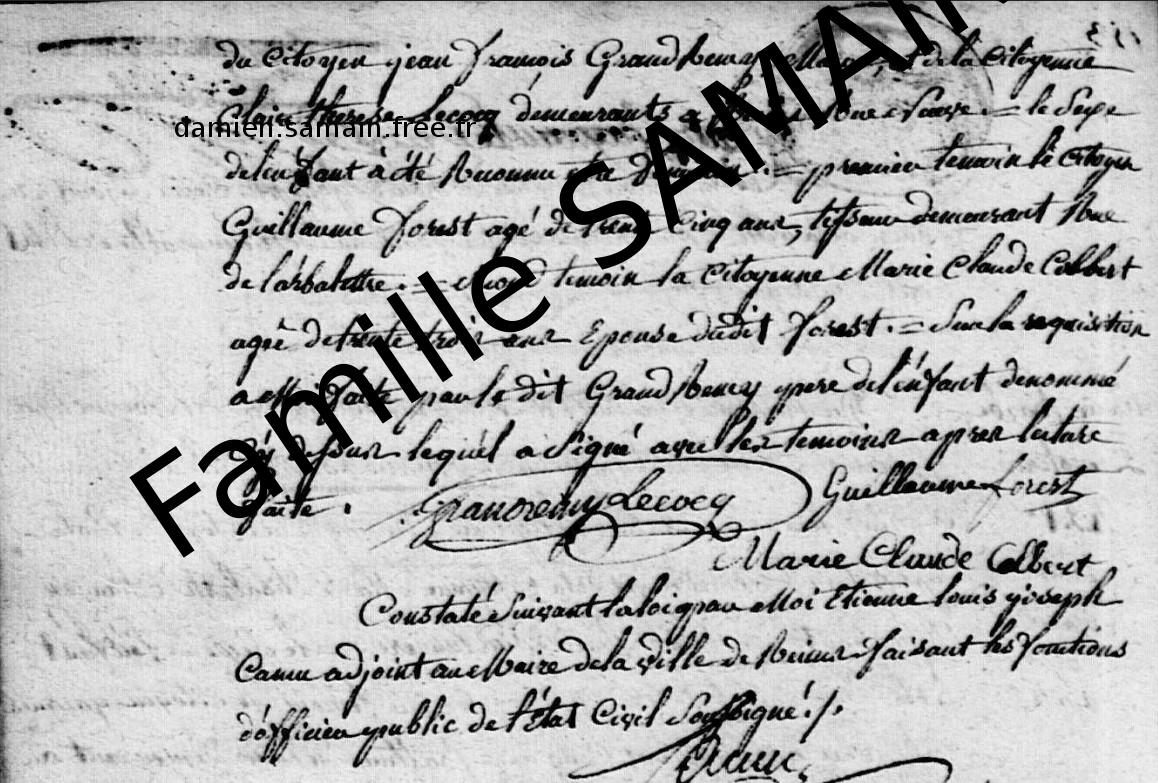 du Citoyen jean françois Grand Remy et de la Citoyenne
Claire therese Lecocq demeurants a Rue Neuve. = le Sexe
de l'enfant à été Reconnu etre feminin. = premier temoin le Citoyen
Guillaume forest agé de trente Cinq ans, tisseur demeurant Rue
de l'arbalettre. = second temoin la Citoyenne Marie Claude Colbert
agée de trente trois ans Epouse dudit forest. = Sur la requisition
a Moi faite par le dit Grand Remy pere de l'enfant denommé
Cy dessus lequel a signé avec les temoins apres lecture
faite.
grandremy Lecocq Guillaume forest
Marie Claude Colbert
Constaté Suivant la loi par Moi Etienne louis joseph
Camu adjoint au Maire de la Ville de Reims faisant les fonctions
d'officier public de l'État Civil Soussigné ./.
Camu
Famille SAMAIN
damien.samain.free.fr